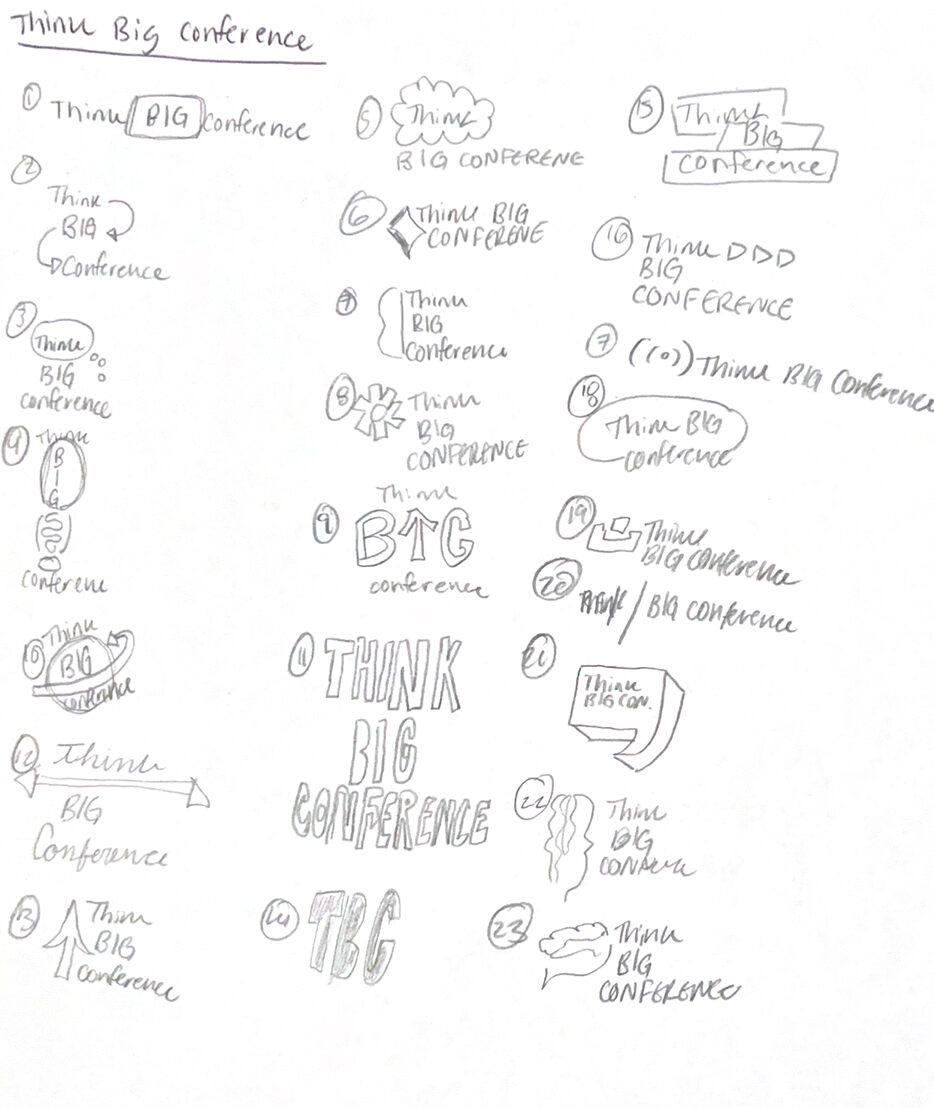 Think Big Conference
①
Think BIG conference
②
Think
BIG
Conference
③
Think
BIG
conference
④
Think
B
I
G
conferenc
⑤
Think
BIG CONFERENE
⑥
Think BIG
CONFERENE
⑦
Think
BIG
Conference
⑧
Think
BIG
CONFERENCE
⑨
Think
BIG
conference
⑩
Think
BIG
conference
⑪
THINK
BIG
CONFERENCE
⑫
Think
BIG
Conference
⑬
Think
BIG
conference
⑭
TBC
⑮
Think
BIG
Conference
⑯
Think
BIG
CONFERENCE
⑦
((o)) Think BIG Conference
⑱
Think BIG
conference
⑲
Think
BIG Conference
⑳
Think / BIG conference
㉑
Think
BIG CON.
㉒
Think
BIG
㉓
Think
BIG
CONFERENCE